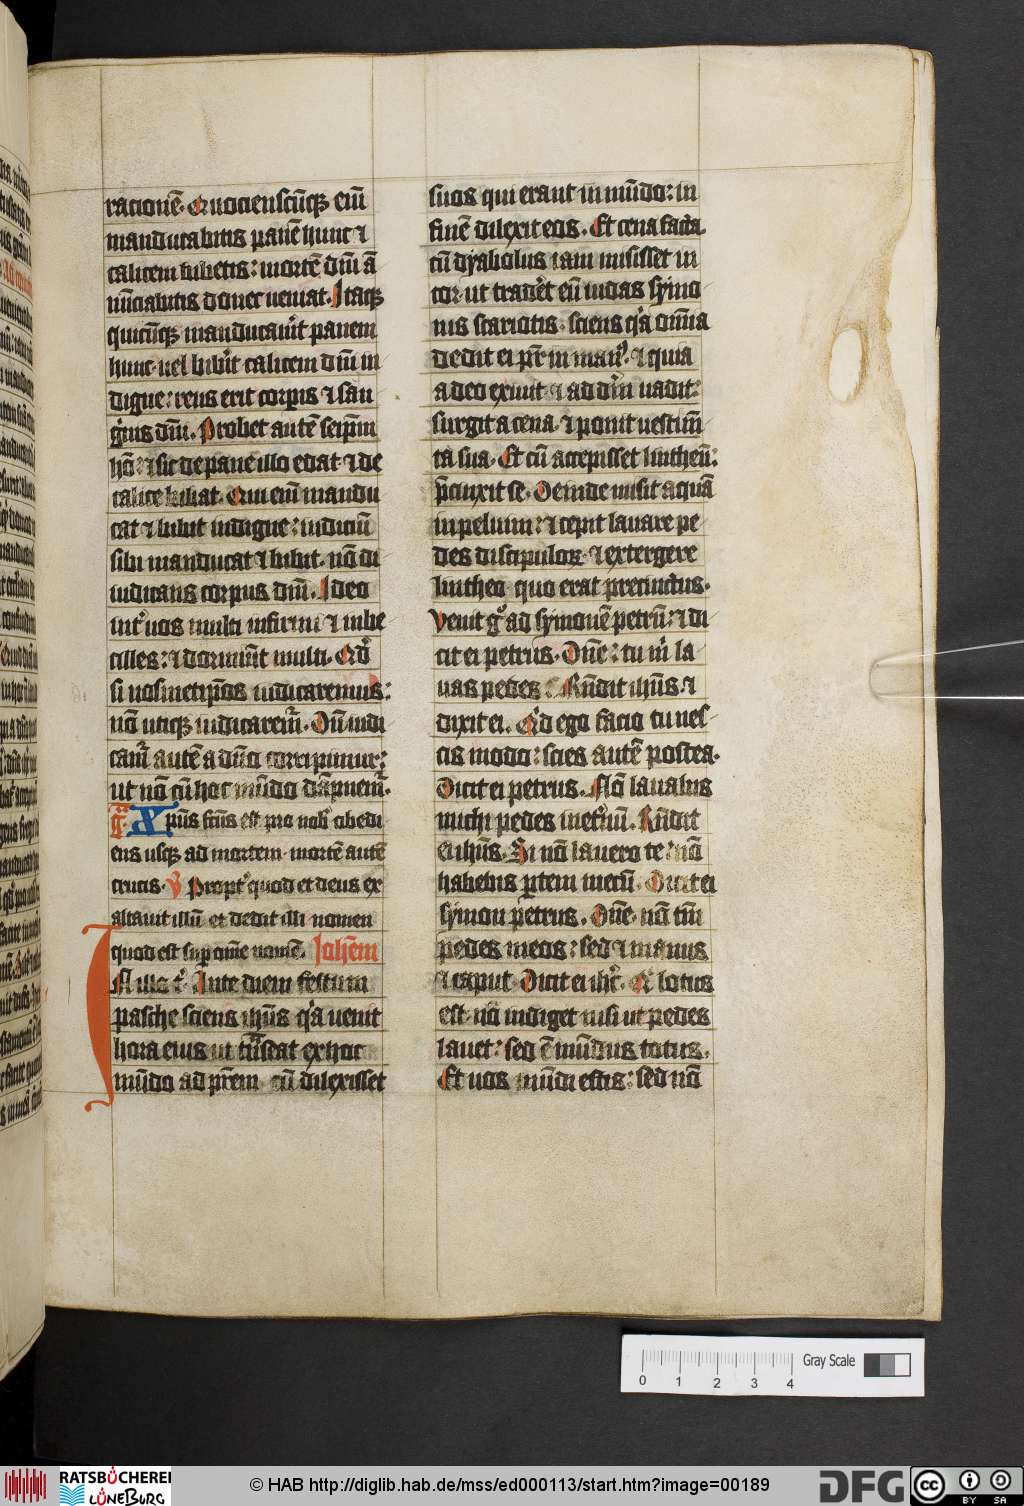 racionē. Quociensc̄ūqꝫ enī
manducabitis panē hunc ⁊
calicem bibetis: mortē dn̄i ā
nūciabitis donec veniat. Itaqꝫ
quicūqꝫ manducauīt panem
hunc uel bibīt calicem dn̄i in
digne: reus erit corpis ⁊ san
gīus dn̄i. Probet autē seip̄m
hō: ⁊ sic de pane illo edat ⁊ de
calice bibat. Qui enī mandu
cat ⁊ bibit indigne: iudiciū
sibi manducat ⁊ bibit. nō di
iudicans corpus dn̄i. Ideo
int̄ uos multi infirmi ⁊ inbe
cilles: ⁊ dormiūt multi. Qd̄
si uosmetip̄os iudicaremus:
nō utiqꝫ iudicarem̄. Dū iudi
cam̄ autē a dn̄o corripimur:
ut nō cū hoc mūdo dāpnem̄.
gͣ. Xp̄us fc̄us est pro nob̄ obedi
ens usqꝫ ad mortem mortē autē
crucis. V Propt̄ quod et deus ex
altauit illū et dedit illi nomen
quod est sup om̄e nomē. Iohēm
In illo t̄. Ante diem festum
pasche sciens ih̄us qͣ uenit
hora eius ut tͣnseat ex hoc
mūdo ad p̄rem. cū dilexisset
suos qui erant in mūdo: in
finē dilexit eos. Et cena facta
cū dyabolus iam misisset in
cor ut trad̄et eū iudas symo
nis scariotis. sciens qͣ om̄ia
dedit ei pr̄ in man⁹. ⁊ quia
a deo exiuit ⁊ ad dm̄ uadit:
surgit a cena. ⁊ ponit uestim̄
ta sua. Et cū accepisset lintheū:
p̄cinxit se. Deinde misit aquā
in peluim: ⁊ cepit lauare pe
des discipuloꝝ. ⁊ extergere
lintheo quo erat precinctus.
Venit gͦ ad symonē petrū: ⁊ di
cit ei petrus. Dn̄e: tu m̄ la
uas pedes. Rn̄dit ih̄us. ⁊
dixit ei. Qd̄ ego facio tu nes
cis modo: scies autē postea.
Dicit ei petrus. Nō lauabis
michi pedes inet̄nū. Rn̄dit
ei ih̄us. Si nō lauero te: nō
habebis p̄tem mecū. Dicit ei
symon petrus. Dn̄e. nō tm̄
pedes meos: sed ⁊ manus
⁊ caput. Dicit ei ih̄c. Qͥ lotus
est. nō indiget nisi ut pedes
lauet: sed ē mūdus totus.
Et uos mūdi estis: sed nō
Gray Scale
0 1 2 3 4
RATSBÜCHEREI LÜNEBURG
© HAB http://diglib.hab.de/mss/ed000113/start.htm?image=00189
DFG
cc BY SA